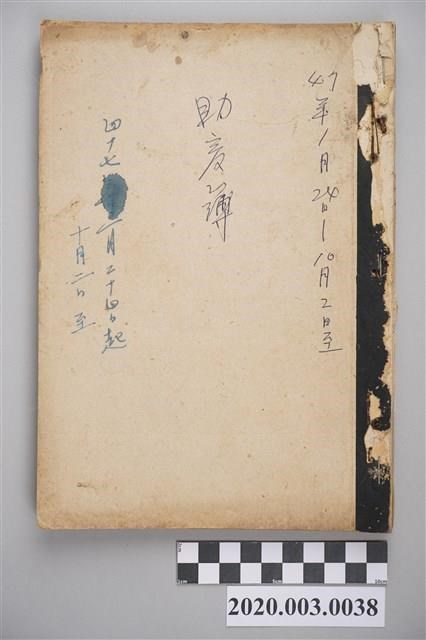 47年1月24日110月2日至
助产簿
四十七年一月二十四日起
十月二日至
1cm
5cm
10cm
2020.003.0038